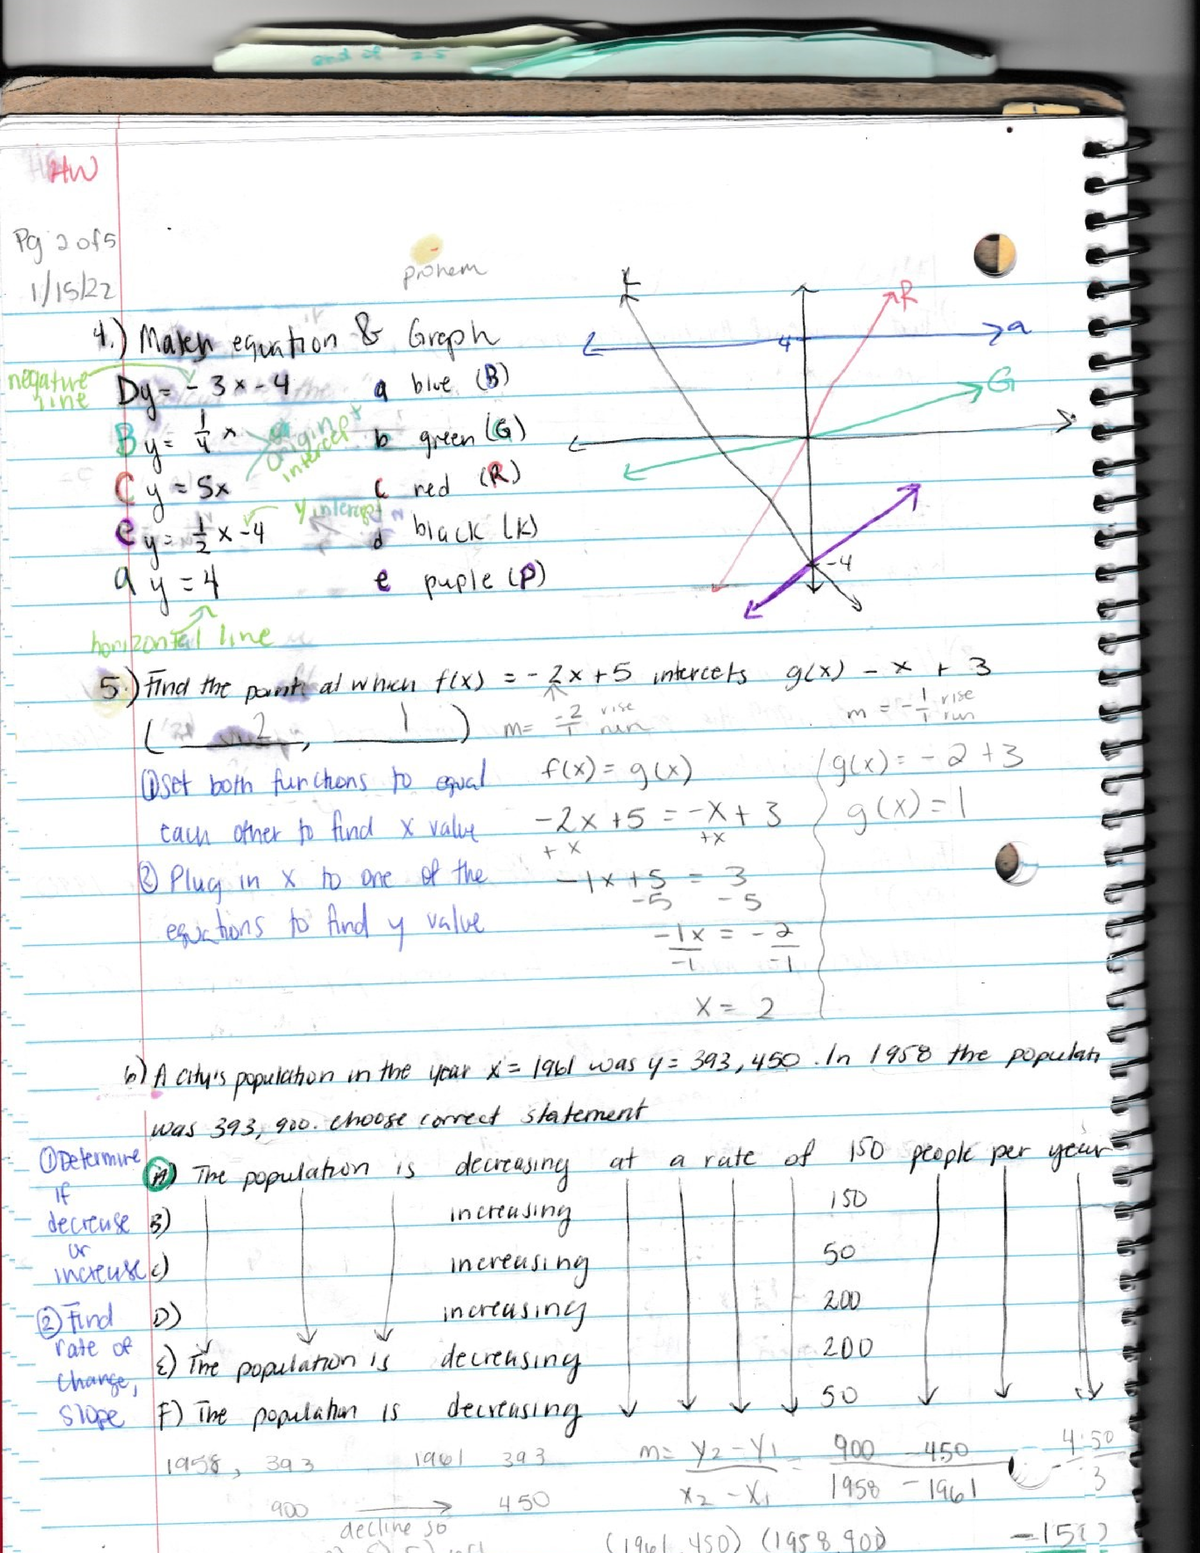 end of 2.5
HW
Pg 2 of 5
1/15/22
prohem
4.) Match equation & Graph
negative line
D y = - 3x - 4 a blue (B)
B y = 1/4 x origin intercept b green (G)
C y = 5x c red (R)
e y = 1/2 x - 4 y intercept d black (K)
a y = 4 e puple (P)
horizontal line
R
4 a
G
-4
5.) Find the point at which f(x) = - 2x + 5 intercets g(x) - x + 3
( 2 , 1 ) m = -2/1 rise run m = - 1/1 rise run
① Set both functions to equal
each other to find x value
② Plug in x to one of the
equations to find y value
f(x) = g(x)
-2x + 5 = -x + 3
+ x +x
-1x + 5 = 3
-5 - 5
-1x = - 2
-1 -1
x = 2
g(x) = - 2 + 3
g(x) = 1
6) A city's population in the year x = 1961 was y = 393,450. In 1958 the populati
was 393,900. choose correct statement
① Determine if decrease or increase
② Find rate of change, slope
A) The population is decreasing at a rate of 150 people per year
B) increasing 150
C) increasing 50
D) increasing 200
E) The population is decreasing 200
F) The population is decreasing 50
1958, 393 1961 393
900 450
decline so
m = y2 - y1 / x2 - x1 = 900 - 450 / 1958 - 1961
450
3
(1961, 450) (1958, 900)
-150